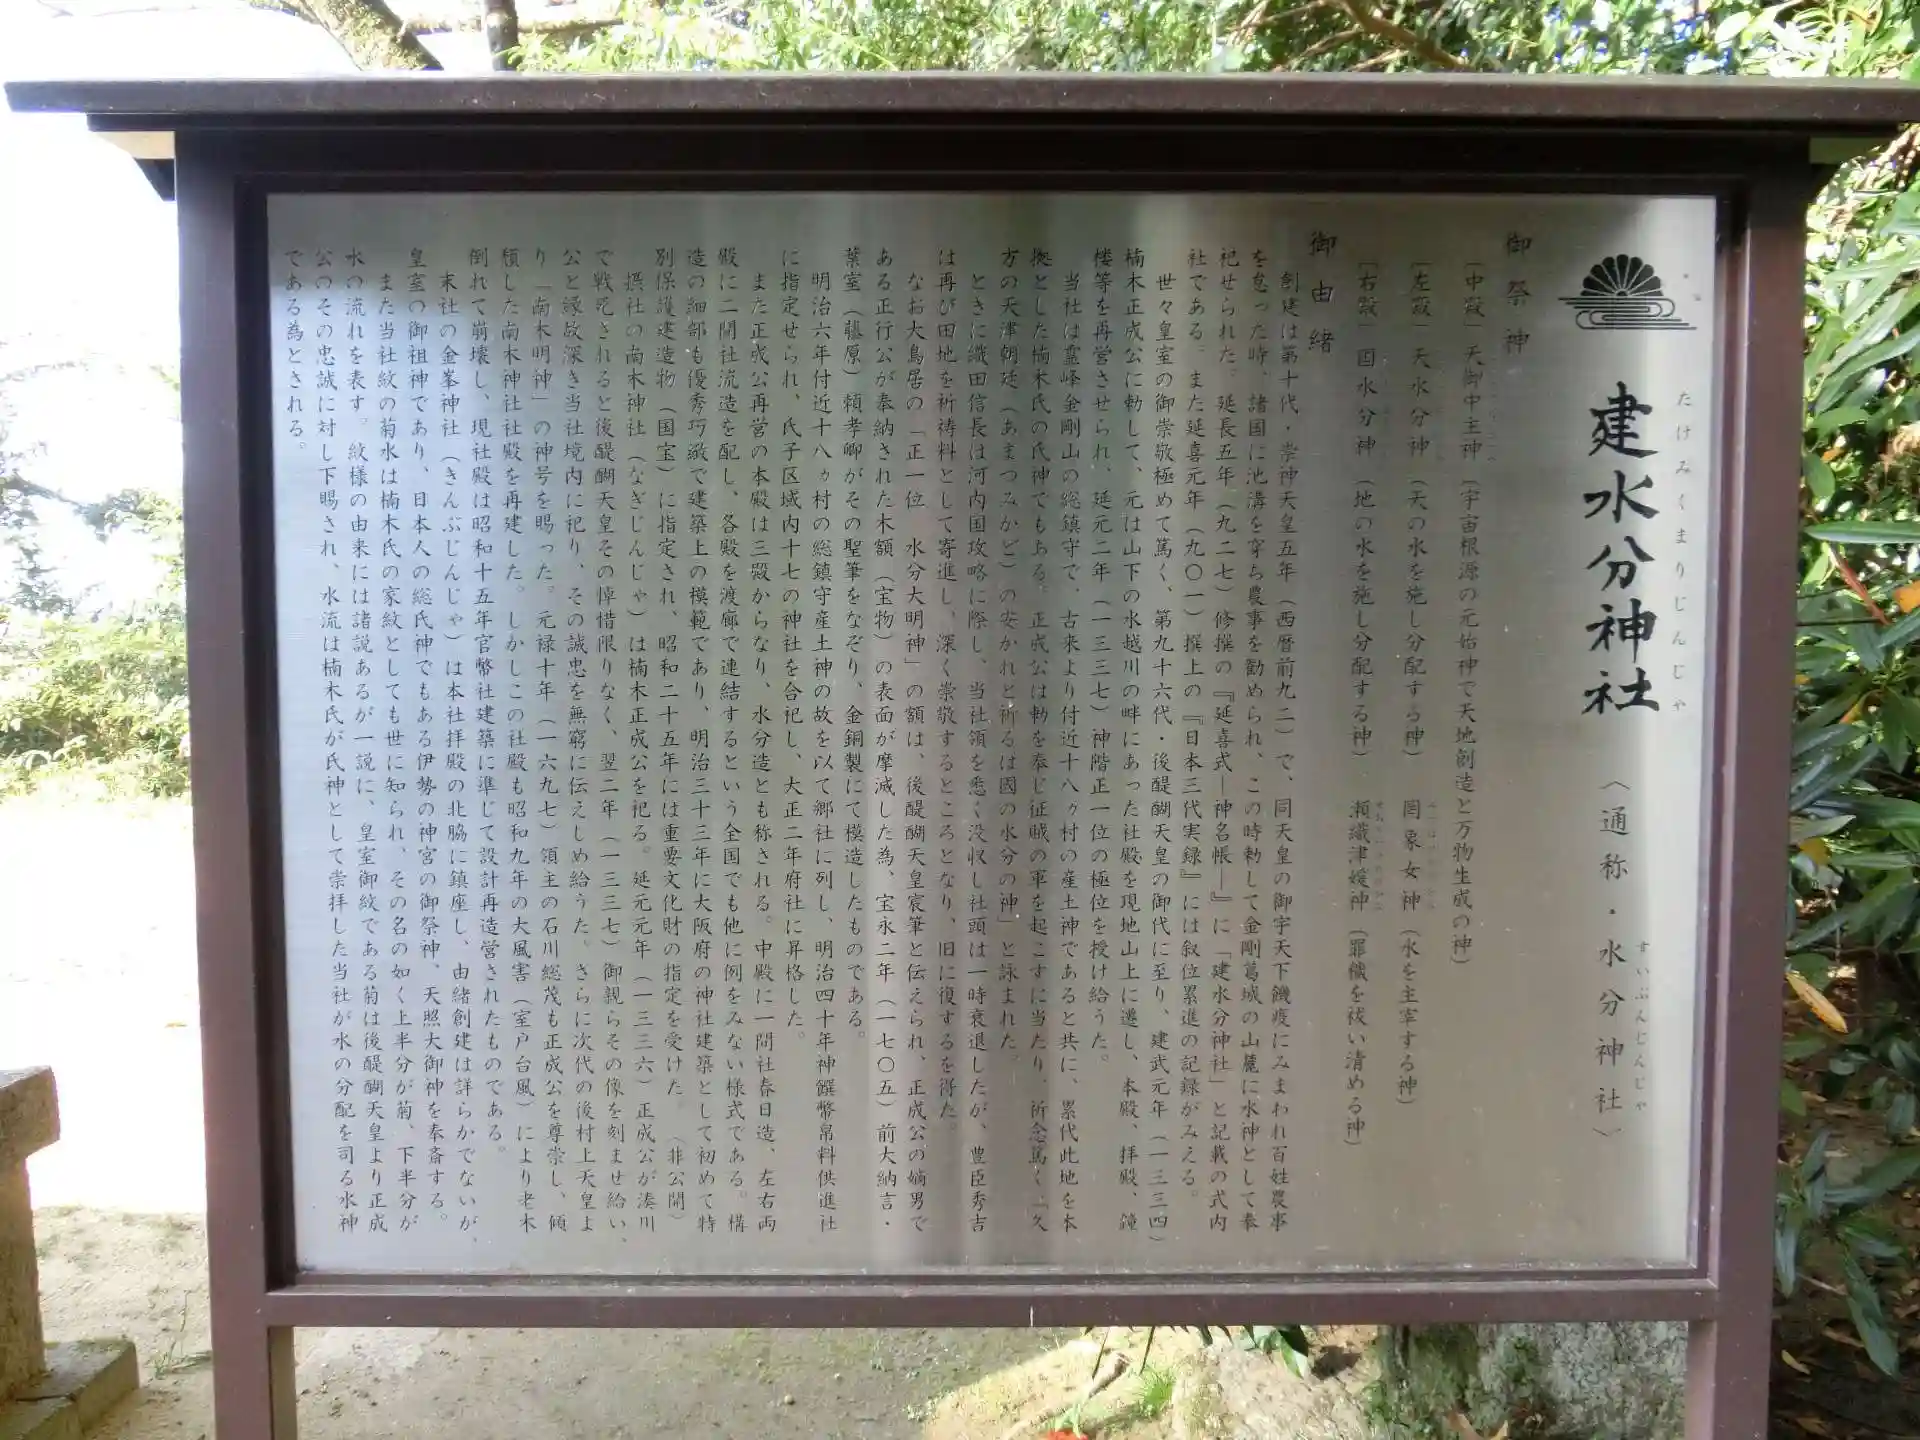 建水分神社
たけみくまりじんじゃ
〈通称・水分神社〉
すいぶんじんじゃ
御祭神
「中殿」天御中主神（宇宙根源の元始神で天地創造と万物生成の神）
「左殿」天水分神（天の水を施し分配する神）　罔象女神（水を主宰する神）
「右殿」国水分神（地の水を施し分配する神）　瀬織津媛神（罪穢を祓い清める神）
御由緒
創建は第十代・崇神天皇五年（西暦前九二）で、同天皇の御宇天下饑疫にみまわれ百姓農事
を怠った時、諸国に池溝を穿ち農事を勧められ、この時勅して金剛葛城の山麓に水神として奉
祀せられた。延長五年（九二七）修撰の『延喜式―神名帳―』に「建水分神社」と記載の式内
社である。また延喜元年（九〇一）撰上の『日本三代実録』には叙位累進の記録がみえる。
世々皇室の御崇敬極めて篤く、第九十六代・後醍醐天皇の御代に至り、建武元年（一三三四）
楠木正成公に勅して、元は山下の水越川の畔にあった社殿を現地山上に遷し、本殿、拝殿、鐘
楼等を再営させられ、延元二年（一三三七）神階正一位の極位を授け給うた。
当社は霊峰金剛山の総鎮守で、古来より付近十八ヶ村の産土神であると共に、累代此地を本
拠とした楠木氏の氏神でもある。正成公は勅を奉じ征賊の軍を起こすに当たり、祈念篤く「久
方の天津朝廷（あまつみかど）の安かれと祈るは國の水分の神」と詠まれた。
ときに織田信長は河内国攻略に際し、当社領を悉く没収し社頭は一時衰退したが、豊臣秀吉
は再び田地を祈祷料として寄進し、深く崇敬するところとなり、旧に復するを得た。
なお大鳥居の「正一位　水分大明神」の額は、後醍醐天皇宸筆と伝えられ、正成公の嫡男で
ある正行公が奉納された木額（宝物）の表面が摩滅した為、宝永二年（一七〇五）前大納言・
葉室（藤原）頼孝卿がその聖筆をなぞり、金銅製にて模造したものである。
明治六年付近十八ヶ村の総鎮守産土神の故を以て郷社に列し、明治四十年神饌幣帛料供進社
に指定せられ、氏子区域内十七の神社を合祀し、大正二年府社に昇格した。
また正成公再営の本殿は三殿からなり、水分造とも称される。中殿に一間社春日造、左右両
殿に二間社流造を配し、各殿を渡廊で連結するという全国でも他に例をみない様式である。構
造の細部も優秀巧緻で建築上の模範であり、明治三十三年に大阪府の神社建築として初めて特
別保護建造物（国宝）に指定され、昭和二十五年には重要文化財の指定を受けた。（非公開）
摂社の南木神社（なぎじんじゃ）は楠木正成公を祀る。延元元年（一三三六）正成公が湊川
で戦死されると後醍醐天皇その悼惜限りなく、翌二年（一三三七）御親らその像を刻ませ給い、
公と縁故深き当社境内に祀り、その誠忠を無窮に伝えしめ給うた。さらに次代の後村上天皇よ
り「南木明神」の神号を賜った。元禄十年（一六九七）領主の石川総茂も正成公を尊崇し、傾
頽した南木神社社殿を再建した。しかしこの社殿も昭和九年の大風害（室戸台風）により老木
倒れて崩壊し、現社殿は昭和十五年官幣社建築に準じて設計再造営されたものである。
末社の金峯神社（きんぶじんじゃ）は本社拝殿の北脇に鎮座し、由緒創建は詳らかでないが、
皇室の御祖神であり、日本人の総氏神でもある伊勢の神宮の御祭神、天照大御神を奉斎する。
また当社紋の菊水は楠木氏の家紋としても世に知られ、その名の如く上半分が菊、下半分が
水の流れを表す。紋様の由来には諸説あるが一説に、皇室御紋である菊は後醍醐天皇より正成
公のその忠誠に対し下賜され、水流は楠木氏が氏神として崇拝した当社が水の分配を司る水神
である為とされる。